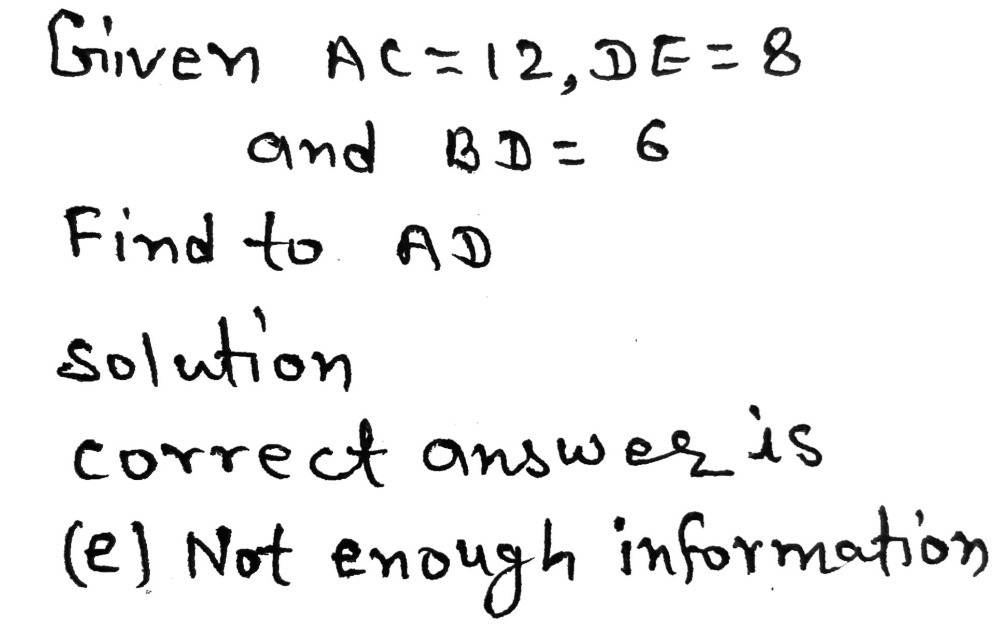 Given AC=12, DE=8
and BD= 6
Find to AD
solution
correct answer is
(e) Not enough information